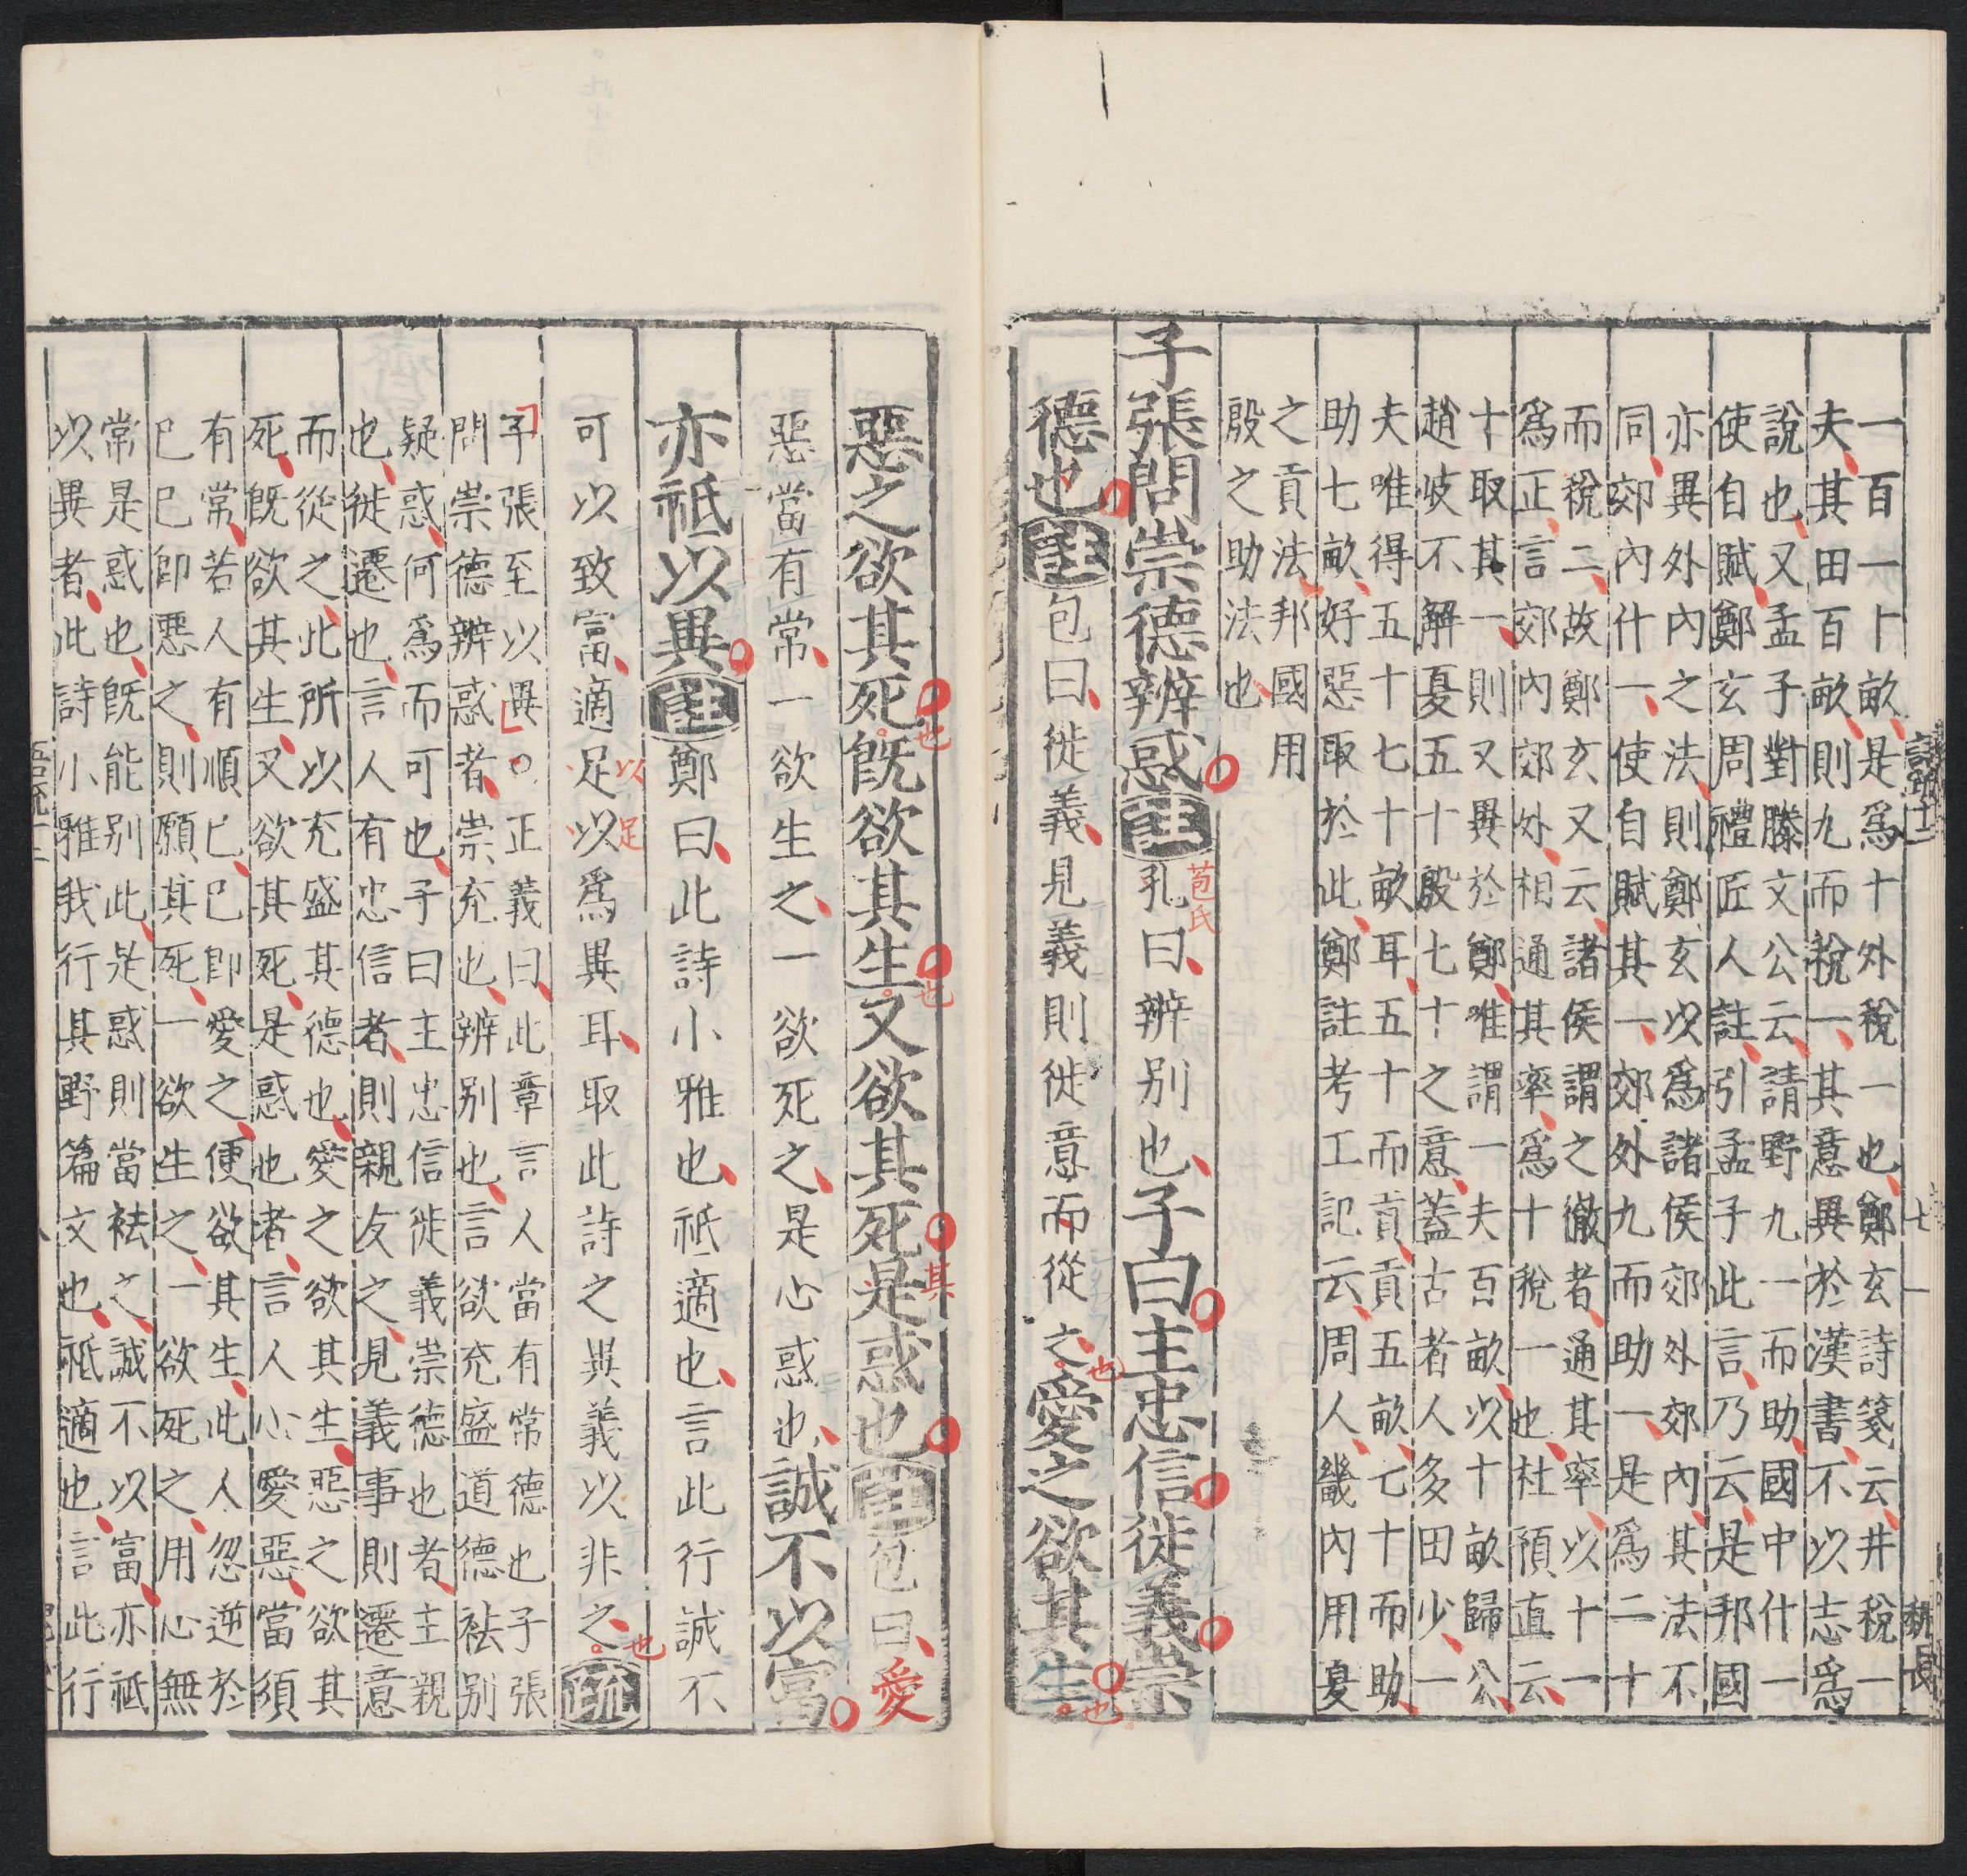 一百一十畝是爲十外稅一也鄭玄詩箋云井稅一
夫其田百畝則九而稅一其意異於漢書不以志爲
說也又孟子對滕文公云請野九一而助國中什一
使自賦鄭玄周禮匠人註引孟子此言乃云是邦國
亦異外內之法則鄭玄以爲諸侯郊外郊內其法不
同郊內什一使自賦其一郊外九而助一是爲二十
而稅二故鄭玄又云諸侯謂之徹者通其率以十一
爲正言郊內郊外相通其率爲十稅一也杜預直云
十取其一則又異於鄭唯謂一夫百畝以十畝歸公
趙岐不解夏五十殷七十之意蓋古者人多田少一
夫唯得五十七十畝耳五十而貢貢五畝七十而助
助七畝好惡取於此鄭註考工記云周人畿內用夏
之貢法邦國用
殷之助法也
子張問崇德辨惑註孔曰辨別也子曰主忠信徙義崇
苞氏
德也註包曰徙義見義則徙意而從之愛之欲其生
也
也
惡之欲其死既欲其生又欲其死是惑也註包曰愛
也
也
其
惡當有常一欲生之一欲死之是心惑也誠不以富
亦祇以異註鄭曰此詩小雅也祇適也言此行誠不
可以致富適足以爲異耳取此詩之異義以非之疏
以足
也
子張至以異○正義曰此章言人當有常德也子張
問崇德辨惑者崇充也辨別也言欲充盛道德袪別
疑惑何爲而可也子曰主忠信徙義崇德也者主親
也徙遷也言人有忠信者則親友之見義事則遷意
而從之此所以充盛其德也愛之欲其生惡之欲其
死既欲其生又欲其死是惑也者言人心愛惡當須
有常若人有順己己卽愛之便欲其生此人忽逆於
己己卽惡之則願其死一欲生之一欲死之用心無
常是惑也既能別此是惑則當袪之誠不以富亦祇
以異者此詩小雅我行其野篇文也祇適也言此行